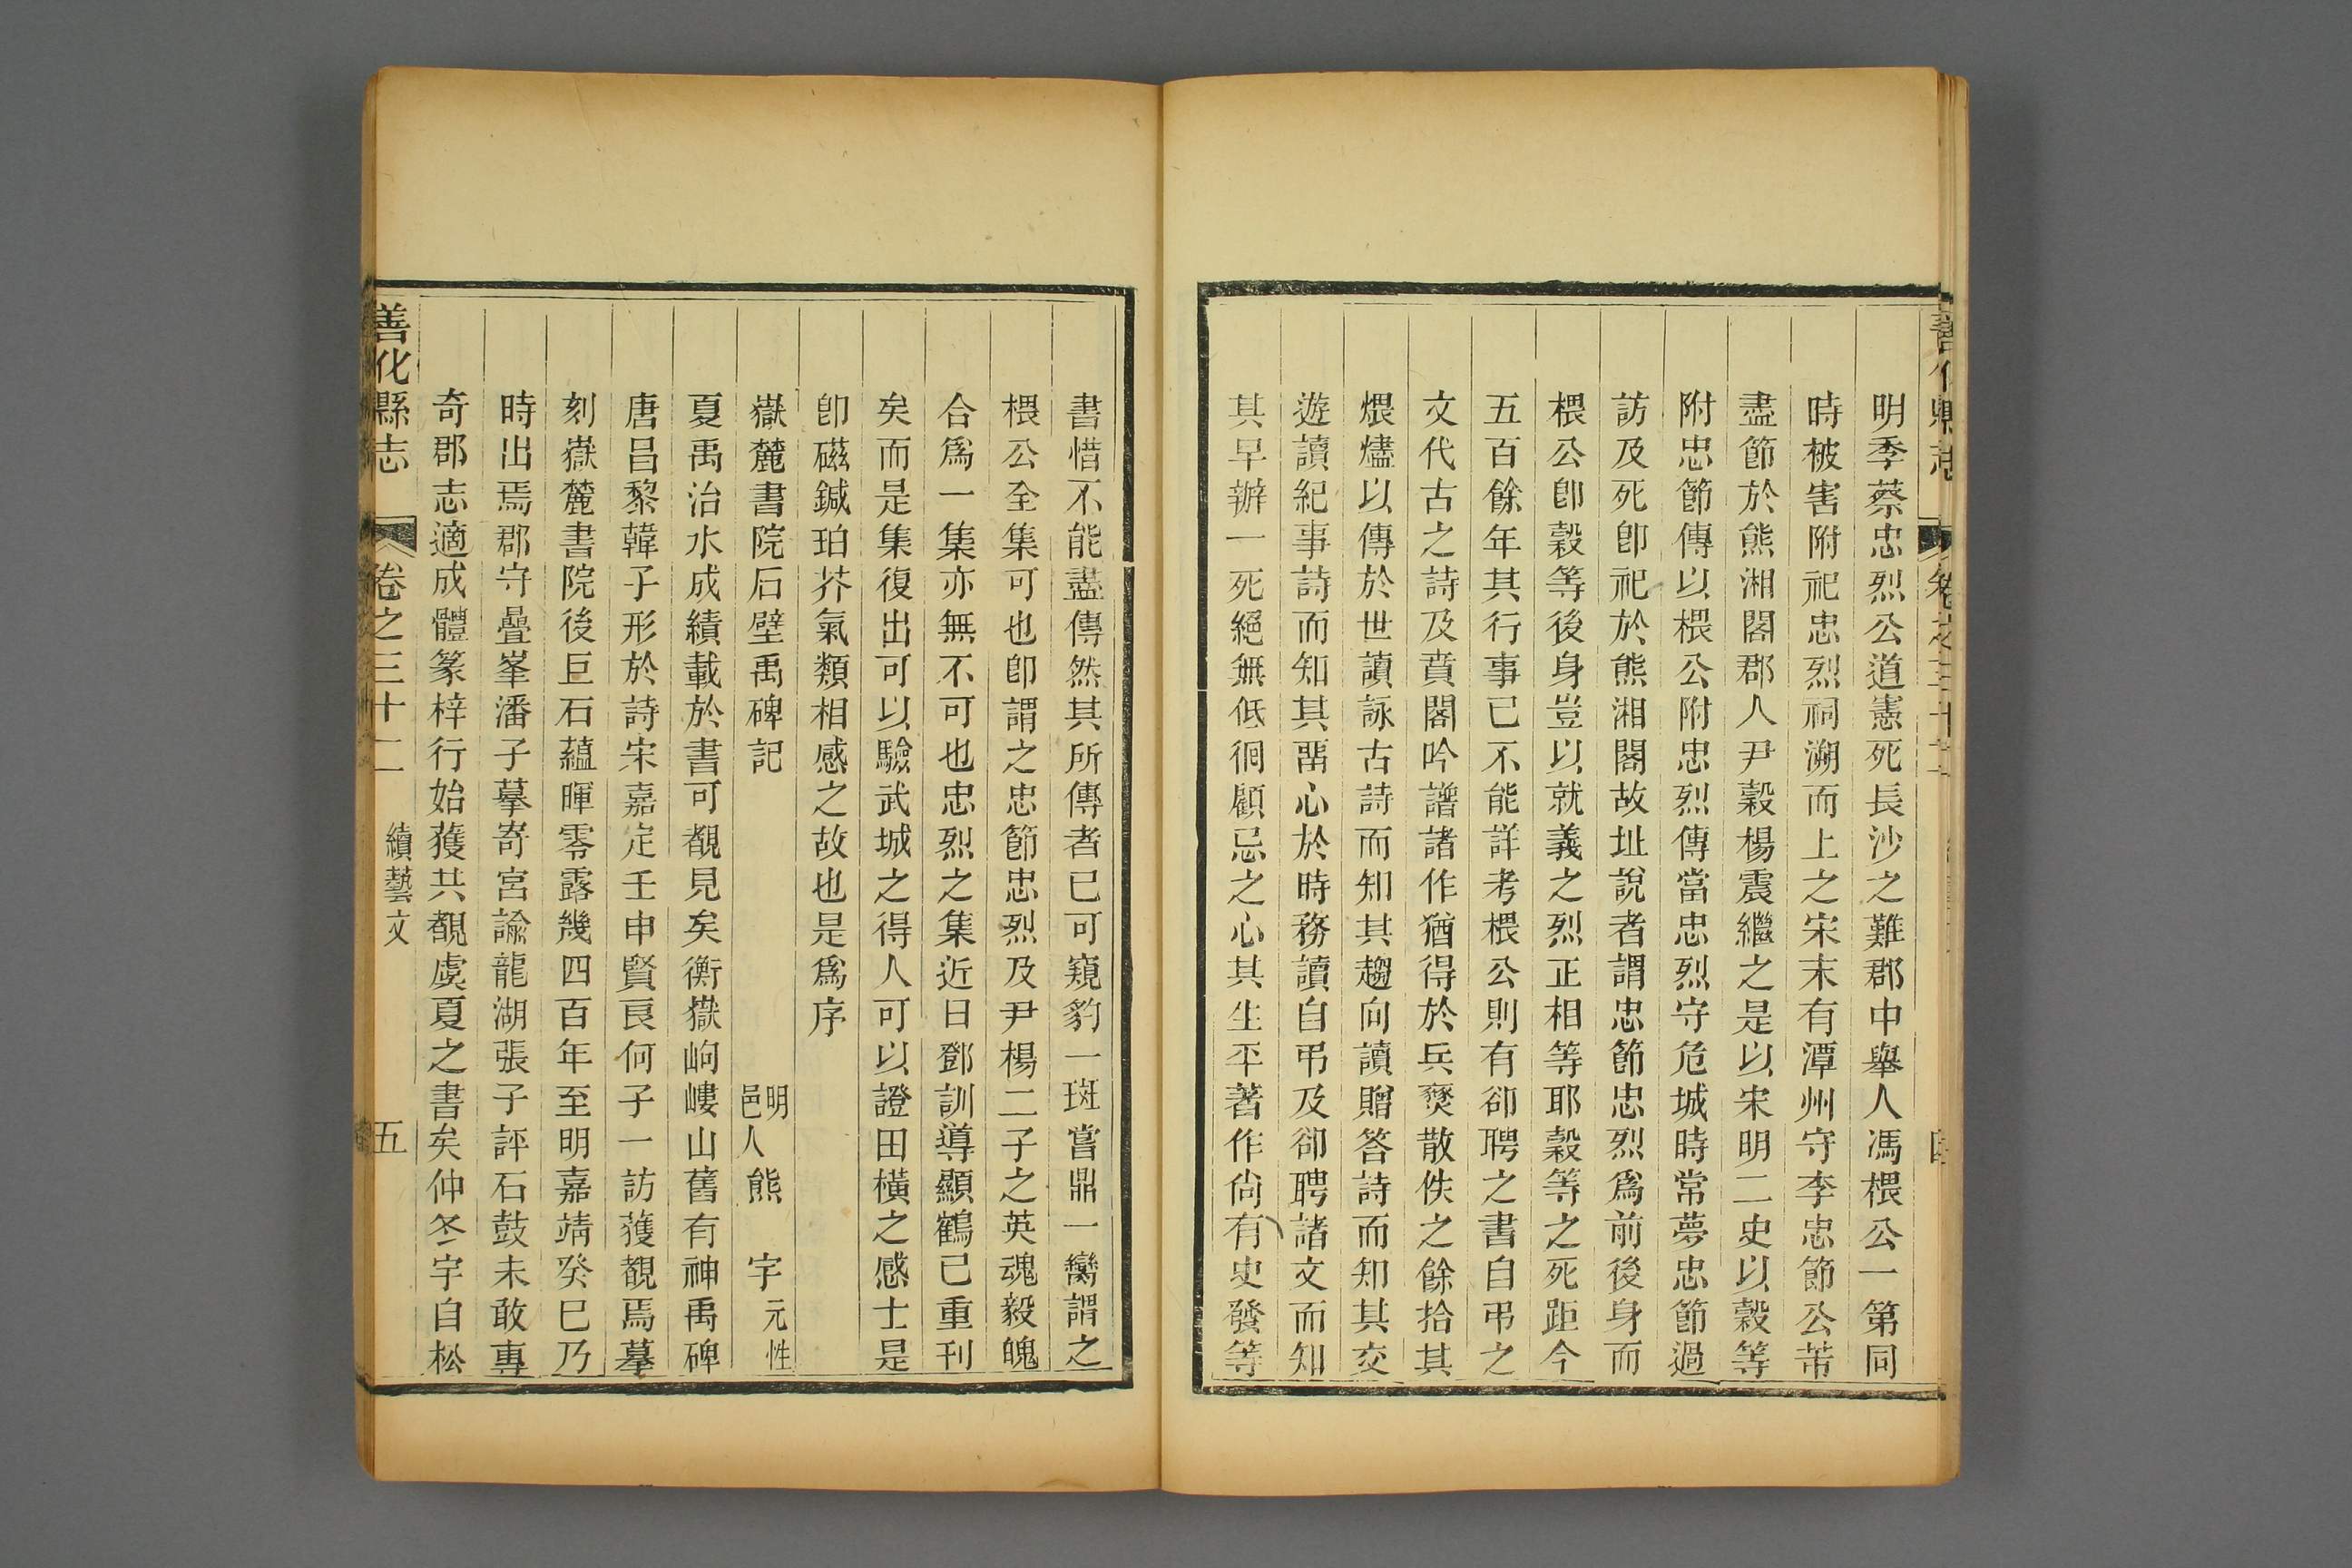 明季蔡忠烈公道憲死長沙之難郡中舉人馮椳公一第同
時被害附祀忠烈祠溯而上之宋末有潭州守李忠節公芾
盡節於熊湘閣郡人尹穀楊震繼之是以宋明二史以穀等
附忠節傳以椳公附忠烈傳當忠烈守危城時常夢忠節過
訪及死卽祀於熊湘閣故址說者謂忠節忠烈爲前後身而
椳公卽穀等後身豈以就義之烈正相等耶穀等之死距今
五百餘年其行事已不能詳考椳公則有卻聘之書自弔之
文代古之詩及賁閣吟譜諸作猶得於兵燹散佚之餘拾其
煨燼以傳於世讀詠古詩而知其趨向讀贈答詩而知其交
遊讀紀事詩而知其畱心於時務讀自弔及卻聘諸文而知
其早辦一死絕無低徊顧忌之心其生平著作尙有史發等
書惜不能盡傳然其所傳者已可窺豹一斑嘗鼎一臠謂之
椳公全集可也卽謂之忠節忠烈及尹楊二子之英魂毅魄
合爲一集亦無不可也忠烈之集近日鄧訓導顯鶴已重刊
矣而是集復出可以驗武城之得人可以證田橫之感士是
卽磁鍼珀芥氣類相感之故也是爲序
嶽麓書院石壁禹碑記 明邑人熊 宇元性
夏禹治水成績載於書可覩見矣衡嶽岣嶁山舊有神禹碑
唐昌黎韓子形於詩宋嘉定壬申賢良何子一訪獲覩焉摹
刻嶽麓書院後巨石蘊暉零露幾四百年至明嘉靖癸巳乃
時出焉郡守曡峯潘子摹寄宮諭龍湖張子評石鼓未敢專
奇郡志適成體篆梓行始獲共覩虞夏之書矣仲冬宇自松
善化縣志 卷之三十二 續藝文 五